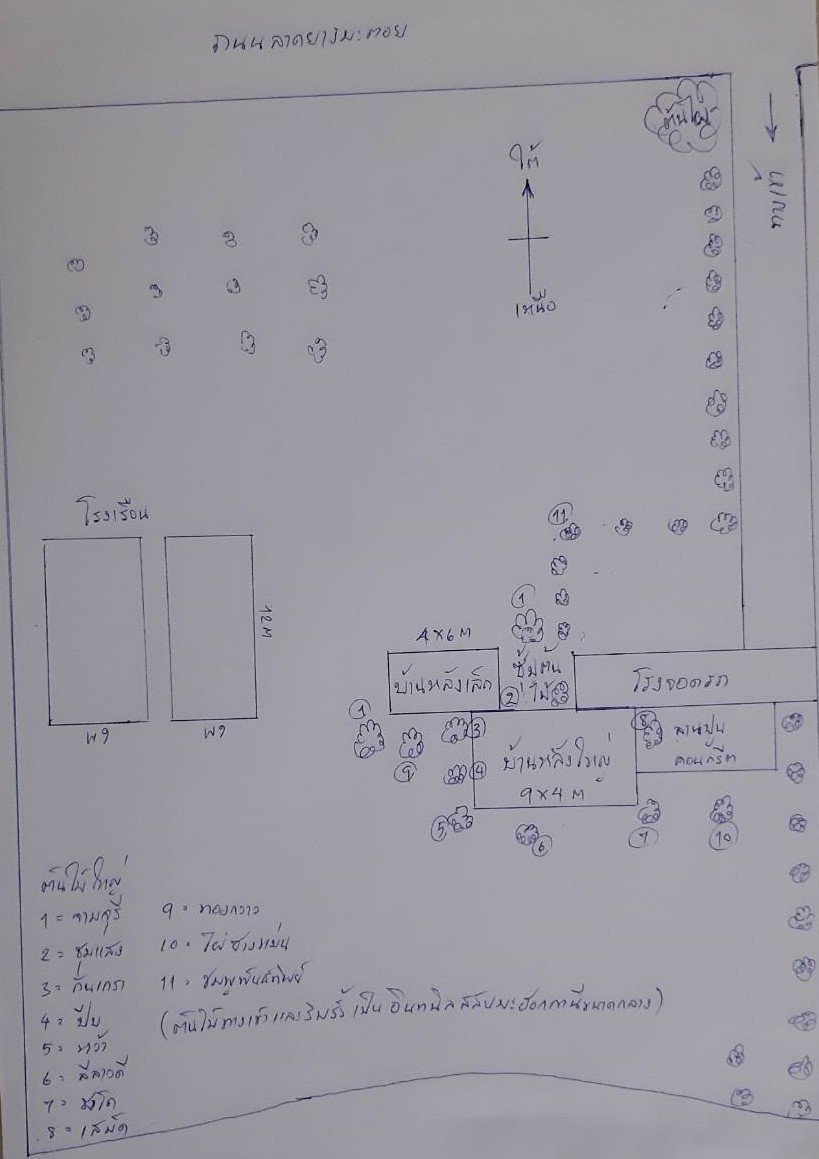 ถนนลาดยางมะตอย
ต้นไผ่
ทางเข้า
ใต้
เหนือ
โรงเรือน
12 M
11
1
4×6 M
บ้านหลังเล็ก
ซุ้มต้น
ไม้
2
โรงจอดรถ
1
9
3
4
5
บ้านหลังใหญ่
9×4 M
6
8
ลานปูน
คอนกรีต
7
10
ต้นไม้ใหญ่
1 = จามจุรี
2 = ชมแสง
3 = กันเกรา
4 = ปีบ
5 = หว้า
6 = ลีลาวดี
7 =
8 = เสม็ด
9 = ทองกวาว
10 = ไผ่ซางหม่น
11 = ชมพูพันธ์ทิพย์
(ต้นไม้ทางเข้าและริมรั้วเป็นอินทนิลสลับมะฮอกกานีขนาดกลาง)